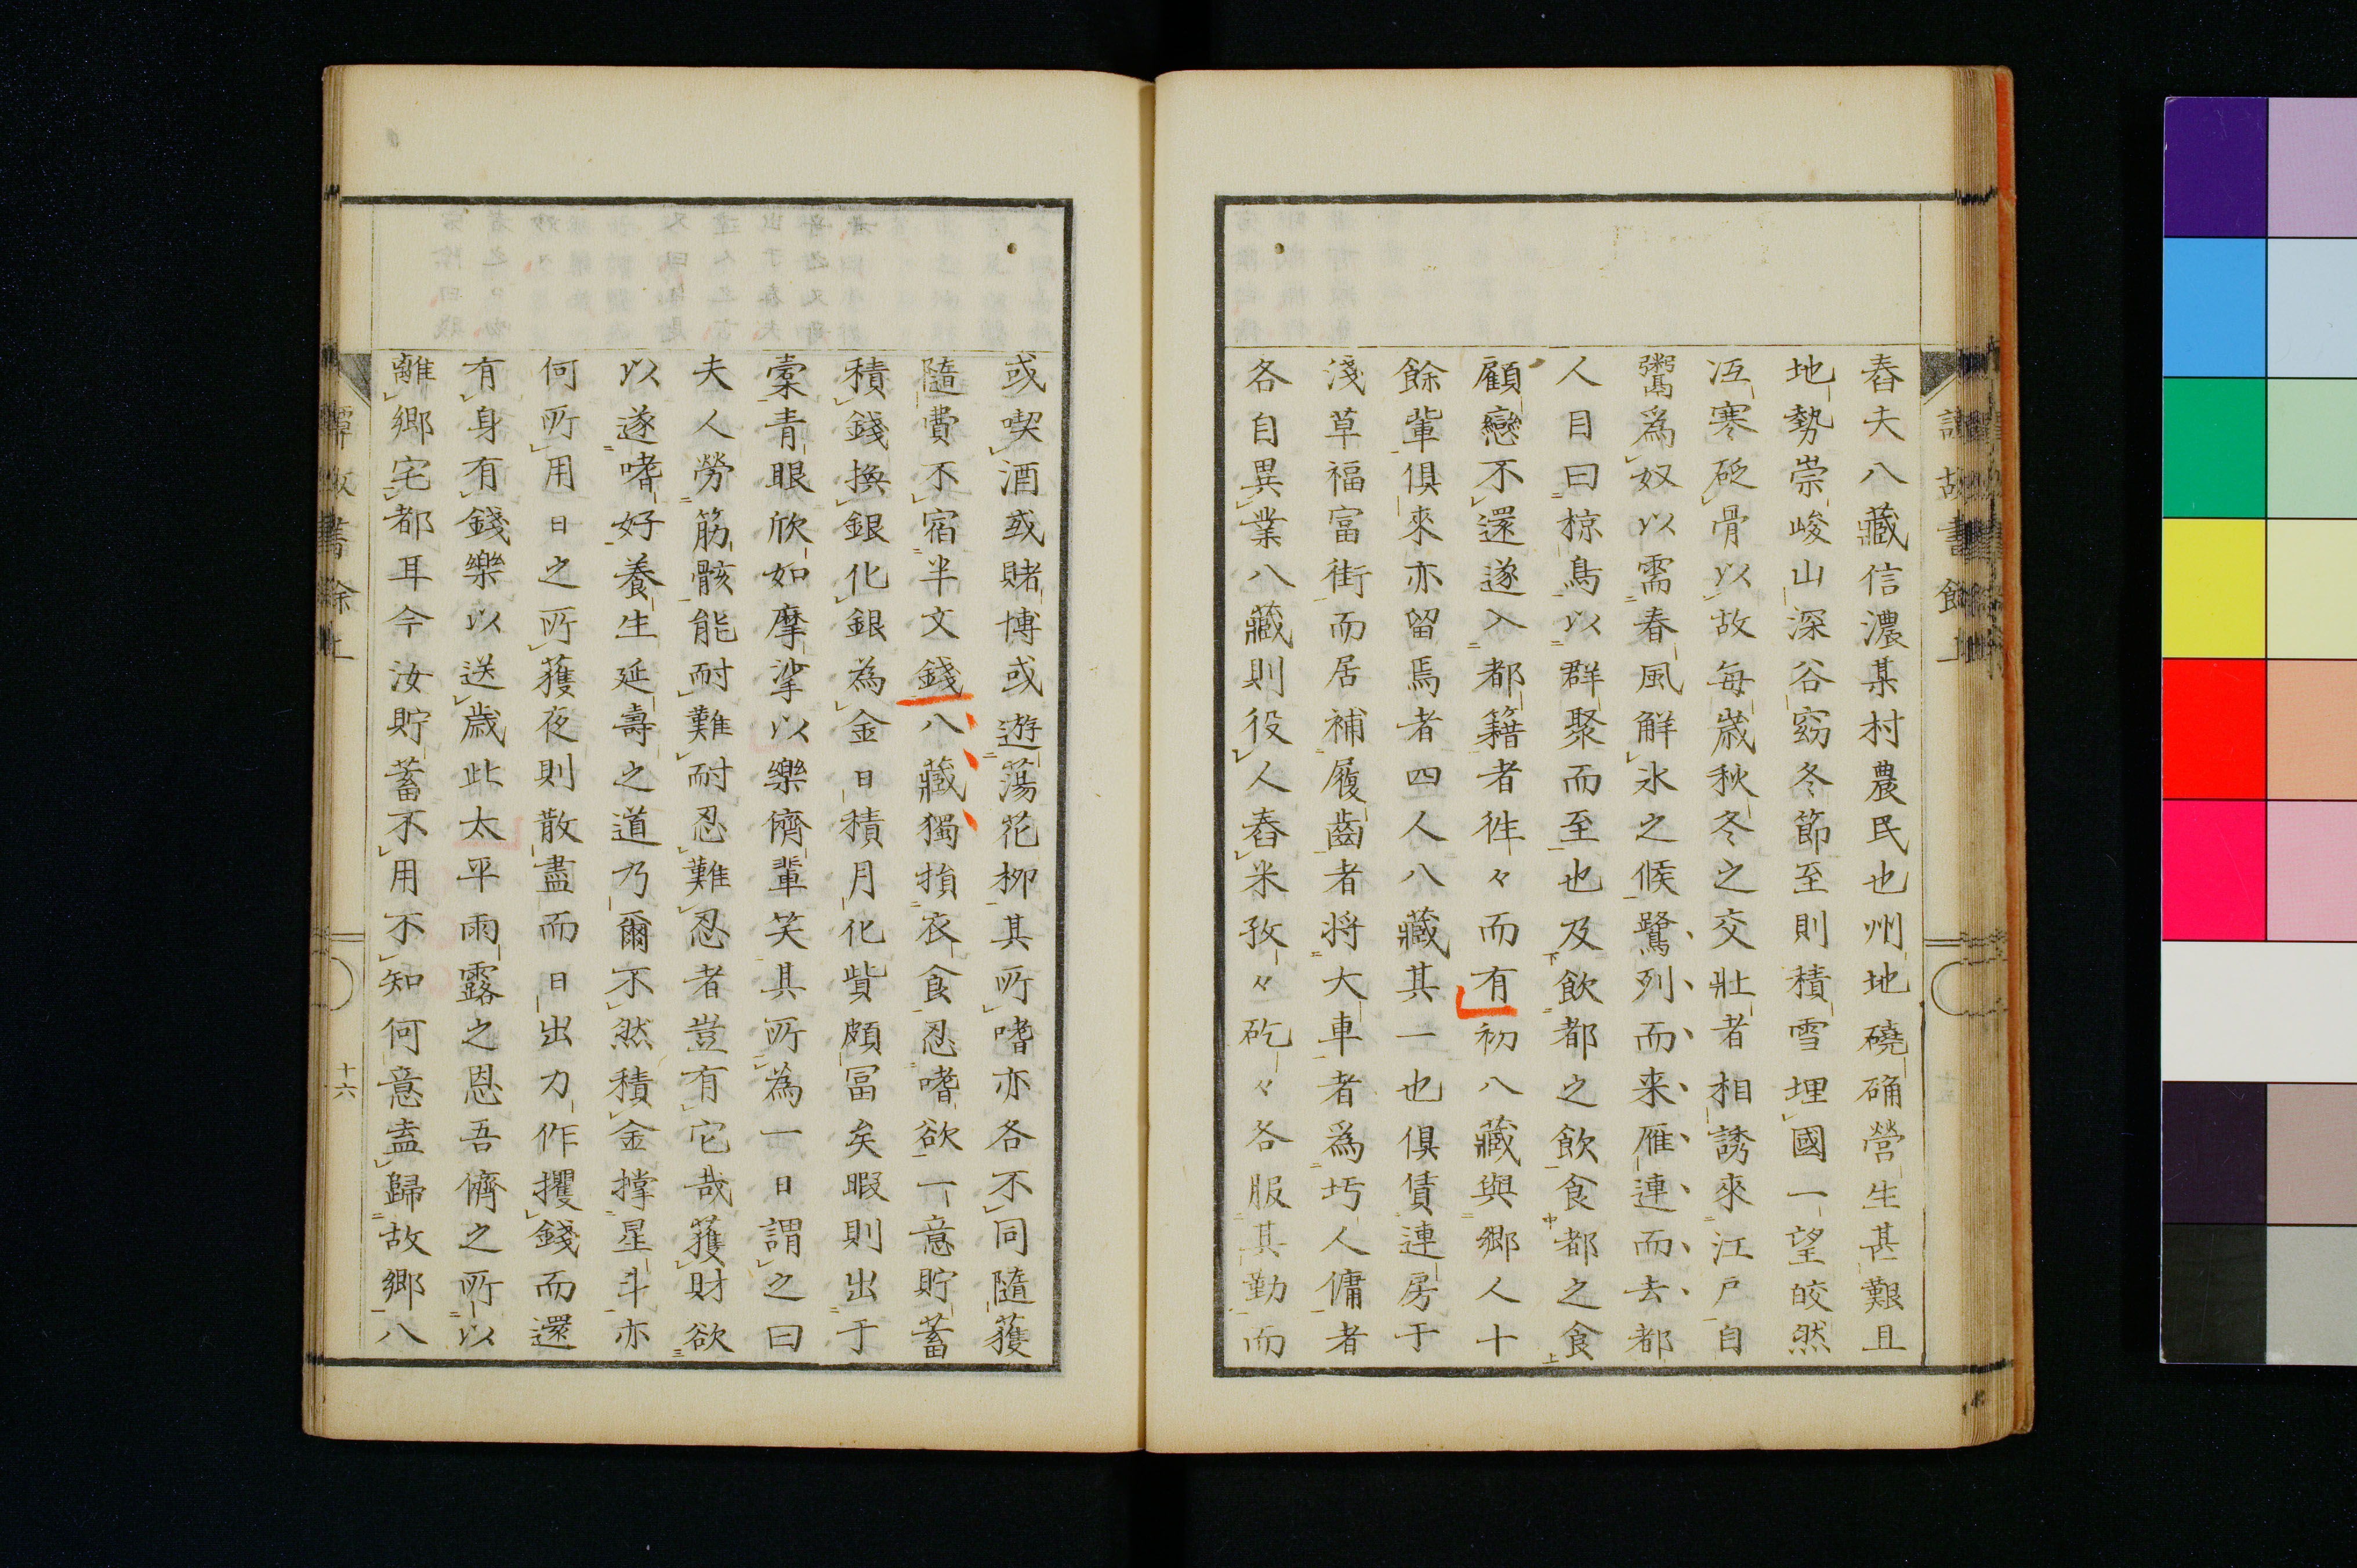 舂夫八藏信濃某村農民也州地磽确營生甚艱且
地勢崇峻山深谷窈冬節至則積雪埋國一望皎然
冱寒砭骨以故每歲秋冬之交壯者相誘來江戶自
鬻爲奴以需春風解氷之候鷺列而来雁連而去都
人目曰椋鳥以群聚而至也及飮都之飮食都之食
顧戀不還遂入都籍者徃々而有初八藏與鄉人十
餘輩俱來亦留焉者四人八藏其一也俱賃連房于
淺草福富街而居補履齒者將大車者爲圬人傭者
各自異業八藏則役人舂米孜々矻々各服其勤而
或喫酒或賭博或遊蕩花柳其所嗜亦各不同隨獲
隨費不宿半文錢八藏獨損衣食忍嗜欲一意貯蓄
積錢換銀化銀為金日積月化貲頗冨矣暇則出于
橐青眼欣如摩挲以樂儕輩笑其所為一日謂之曰
夫人勞筋骸能耐難耐忍難忍者豈有它哉獲財欲
以遂嗜好養生延壽之道乃爾不然積金撑星斗亦
何所用日之所獲夜則散盡而日出力作攫錢而還
有身有錢樂以送歲此太平雨露之恩吾儕之所以
離鄉宅都耳今汝貯蓄不用不知何意盍歸故鄉八
譚故書餘上
十六